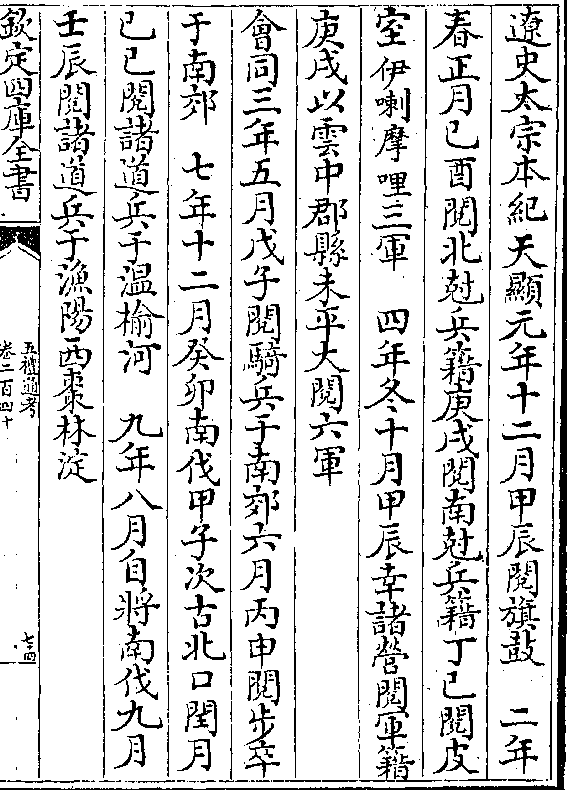 遼史太宗本紀天顯元年十二月甲辰閱旗鼓　二年
春正月己酉閱北尅兵籍庚戌閱南尅兵籍丁巳閱皮
室伊喇摩哩三軍　四年冬十月甲辰幸諸營閱軍籍
庚戌以雲中郡縣未平大閱六軍
會同三年五月戊子閱騎兵于南郊六月丙申閱步卒
于南郊　七年十二月癸卯南伐甲子次古北口閏月
己巳閱諸道兵于温榆河　九年八月自將南伐九月
壬辰閱諸道兵于漁陽西棗林淀
欽定四庫全書
五禮通考
卷二百四十
七四